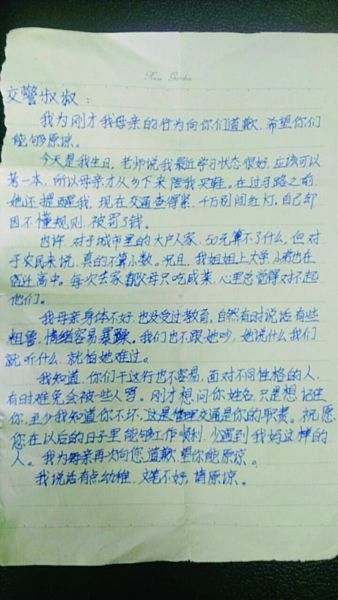 Garden
交警叔叔：
我为刚才我母亲的行为向你们道歉，希望你们
能够原谅。
今天是我生日，老师说我最近学习状态很好，应该可以
第一本，所以母亲才从乡下来陪我买鞋。在过马路之前，
她还提醒我，现在交通查得紧，千万别闯红灯，自己却
因不懂规则，被罚了钱。
也许，对于城市里的大户人家，50元算不了什么，但对
于农民来说，真的不算小数。况且，我姐姐上大学，小弟也在
上高中。每次去家，父母只吃咸菜，心里总觉得对不起
他们。
我母亲身体不好，也没受过教育，自然有时说话有些
粗鲁，情绪容易暴躁。我们也不跟她吵，她说什么我们
就听什么，就怕她难过。
我知道，你们干这行也不容易，面对不同性格的人，
有时难免会被些人骂。刚才想问你姓名，只是想记住
你，至少我知道你不坏，这是管理交通是你的职责。祝愿
您在以后的日子里能够工作顺利，少遇到我妈这样的
人。我为母亲再次向您道歉，望你能原谅。
我说话有点幼稚，文笔不好，请原谅。